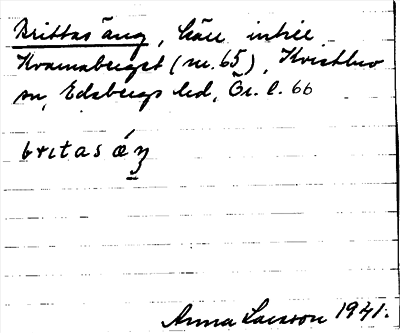 Brittas äng, häll intill
Kvarnaberget (nr. 65), Kvistbro
sn, Edsbergs hd, Ör. l. 66
britas äŋ
Anna Larsson 1941.